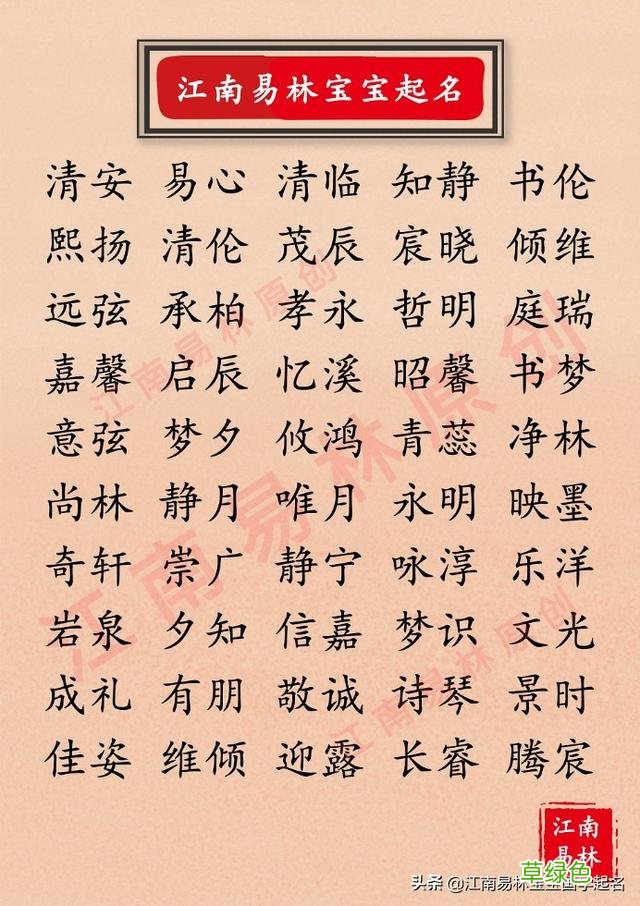 江南易林宝宝起名
清安 易心 清临 知静 书伦
熙扬 清伦 茂辰 宸晓 倾维
远弦 承柏 孝永 哲明 庭瑞
嘉馨 启辰 忆溪 昭馨 书梦
意弦 梦夕 攸鸿 青蕊 净林
尚林 静月 唯月 永明 映墨
奇轩 崇广 静宁 咏淳 乐洋
岩泉 夕知 信嘉 梦识 文光
成礼 有朋 敬诚 诗琴 景时
佳姿 维倾 迎露 长睿 腾宸
江南易林原创
江南易林原创
江南易林原创
江南
易林
草绿色
头条 @江南易林宝宝国学起名